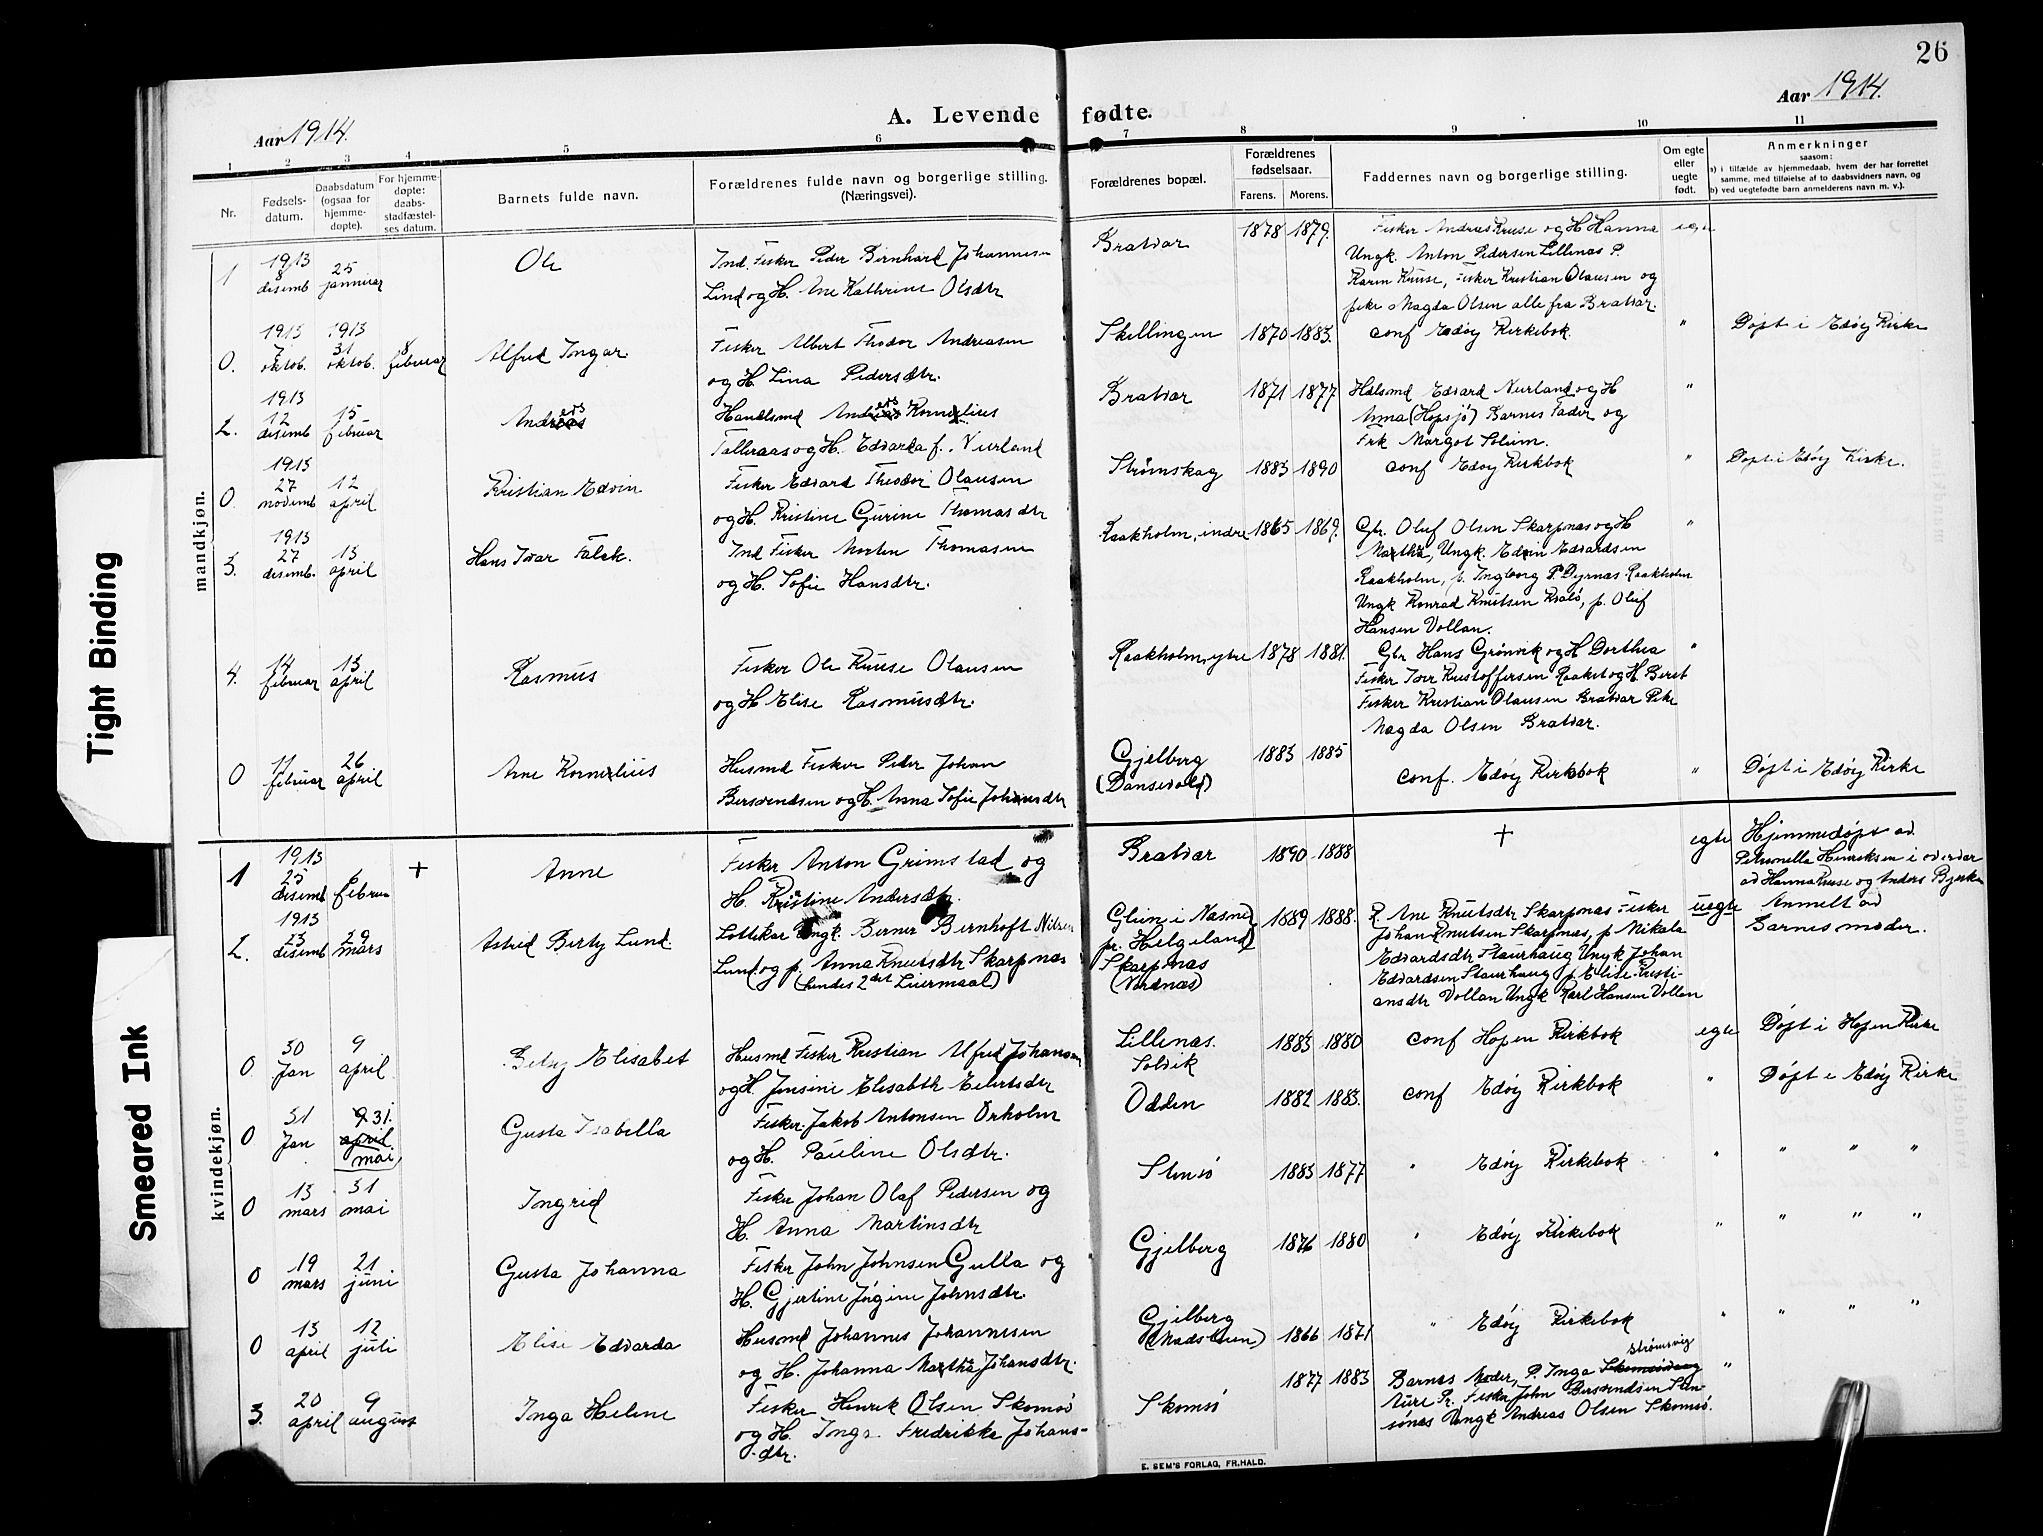 26
Aar 1914.
A. Levende fødte.
Aar 1914.
1 2 3 4 5 6 7 8 9 10 11
Nr.
Fødsels-
datum.
Daabsdatum
(ogsaa for
hjemme-
døpte).
For hjemme-
døpte:
daabs-
stadfæstel-
ses datum.
Barnets fulde navn.
Forældrenes fulde navn og borgerlige stilling.
(Næringsvei).
Forældrenes bopæl.
Forældrenes
fødselsaar.
Farens. Morens.
Faddernes navn og borgerlige stilling.
Om egte
eller
uegte
født.
Anmerkninger
saasom:
a) i tilfælde av hjemmedaab, hvem der har forrettet
samme, med tilføielse af to daabsvidners navn, og
b) ved uegtefødte barn anmelderens navn m. v.).
mandkjøn.
1 1913 8 disemb 25 januar Ole
Ind. Fisker Peder Bernhard Johannesen
Lind og H. Ane Kathrine Olsdtr
Bratvær 1878 1879.
Fisker Andreas Kruse og H Hanna egte
Ungk. Anton Pedersen Lillenas P.
Karen Kruse, Fisker Kristian Olausen og
pike Magda Olsen alle fra Bratvær.
0. 1913 7 oktob. 1913 31 oktob. 8 februar Alfred Ingar.
Fisker Albert Thodor Andreasen
og H. Lina Pedersdtr.
Skellingen 1870 1883. conf Edøy Kirkebok. " Døpt i Edøy Kirke
2. 1913 12 disemb 15 februar Anders
Handlsmd Anders Kornelius
Talleraas og H. Edvarda f. Neerland
Bratvær 1871 1877
Hdlsmd Edvard Neerland og H "
Anna (Hopsjø) Barnes Fader og
Frk Margot Solum.
0. 1913 27 novemb 12 april Kristian Edvin
Fisker Edvard Theodor Olausen
og H. Kristine Gurine Thomasdtr
Strømskag 1883 1890 conf Edøy Kirkbok " Døpt i Edøy Kirke.
3. 1913 27 disemb. 13 april Hans Ivar Falck.
Ind Fisker Morten Thomasen
og H. Sofie Hansdtr.
Raakholm, indre 1865 1869.
Gbr. Oluf Olsen Skarpnas og H "
Martha, Ungk. Edvin Edvardsen
Raakholm, p. Ingborg P. Dyrnas Raakholm
Ungk Konrad Knutsen Kvalø, p. Oluf
Hansen Vollan.
4. 14 februar 13 april Rasmus
Fisker Ole Kruse Olausen
og H Elise Rasmusdtr.
Raakholm, ytre 1878 1881.
Gbr Hans Grønvik og H Dorthea "
Fisker Iver Kristoffersen Raaket og H Beret
Fisker Kristian Olausen Bratvær Pike
Magda Olsen Bratvær.
0 11 februar 26 april Arne Kornelius
Husmd Fisker Peder Johan
Bersvendsen og H. Anna Sofie Johansdtr
Gjelberg 1883 1885
(Dansevold)
conf. Edøy Kirkbok " Døpt i Edøy Kirke
kvindekjøn.
1 1913 25 disemb 8 februar + Anne
Fisker Anton Grimstad og
H. Kristine Andersdtr.
Bratvær 1890 1888 + egte
Hjemmedøpt av
Petronella Henriksen i overvær
av Hanna Kruse og Anders Bjerkan
2. 1913 23 disemb 29 mars Astrid Berty Lund.
Lottekar Ungk. Berner Bernhoft Nilsen
Lund og p. Anna Knutsdtr Skarpnas
(hendes 2det Leiermaal)
Glein i Nasna 1889 1888.
pr. Helgeland)
Skarpnas
(Nordnas)
P. Ane Knutsdtr Skarpnas Fisker uegte
Johan Knutsen Skarpnas, p Nikala
Edvardsdtr Staurhaug Ungk Johan
Edvardsen Staurhaug p. Elise Kristi-
ansdtr Vollan Ungk Karl Hansen Vollan
Anmelt av
Barnes moder.
0 30 Jan 9 april Betsy Elisabet
Husmd Fisker Kristian Alfred Johansen
og H. Jensine Elisabth Eilertsdtr
Lillenas. 1883 1880
Solvik
conf Hopen Kirkbok egte Døpt i Hopen Kirke
0 31 Jan 9 31. april mai Gusta Isabella
Fisker Jakob Antonsen Orholm
og H. Pauline Olsdtr.
Odden 1882 1883. conf Edøy Kirkbok " Døpt i Edøy Kirke
0 13 mars 31 mai Ingrid
Fisker Johan Olaf Pedersen og
H. Anna Martinsdtr
Stensø 1883 1877 " Edøy Kirkebok " " " "
0 19 mars 21 juni Gusta Johanna
Fisker John Johnsen Gulla og
H. Gjertine Jørgine Johnsdtr.
Gjelberg 1876 1880 " Edøy Kirkebok " " " "
0 13 april 12 juli Elise Edvarda
Husmd Johannes Johannesen
og H. Johanna Martha Johansdtr.
Gjelberg 1866 1871
" Edøy Kirkebok " " " "
3. 20 april 9 august Inga Helene
Fisker Henrik Olsen Skomsø
og H. Inga Fredrikke Johans-
dtr.
Skomsø 1877 1883
Strømsvig
Barnas Moder, P. Inga "
Aure Pr. Fisker John Bersvendsen Sten-
sønas Ungk Andreas Olsen Skomsø.
E. SEM'S FORLAG, FR.HALD.
Tight Binding
Smeared Ink